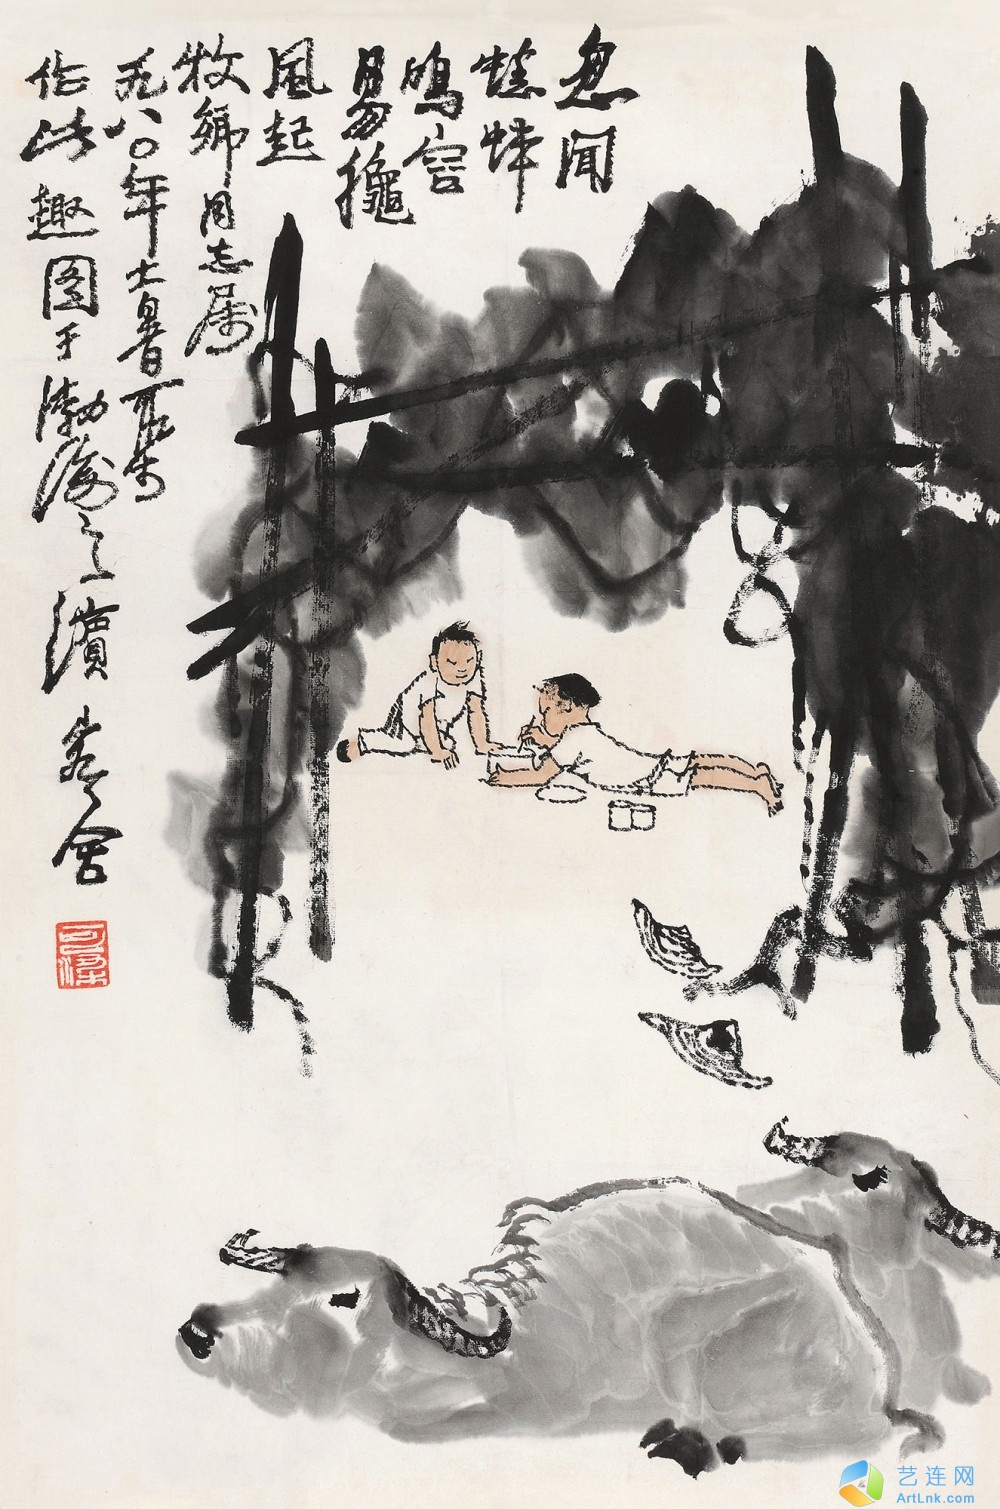 忽闻
蟋蟀
鸣容
易龝
風起
牧乡同志属
一九八〇年大暑可染
作此趣图于渤海之濱客舍
可染
艺连网
ArtLnk.com